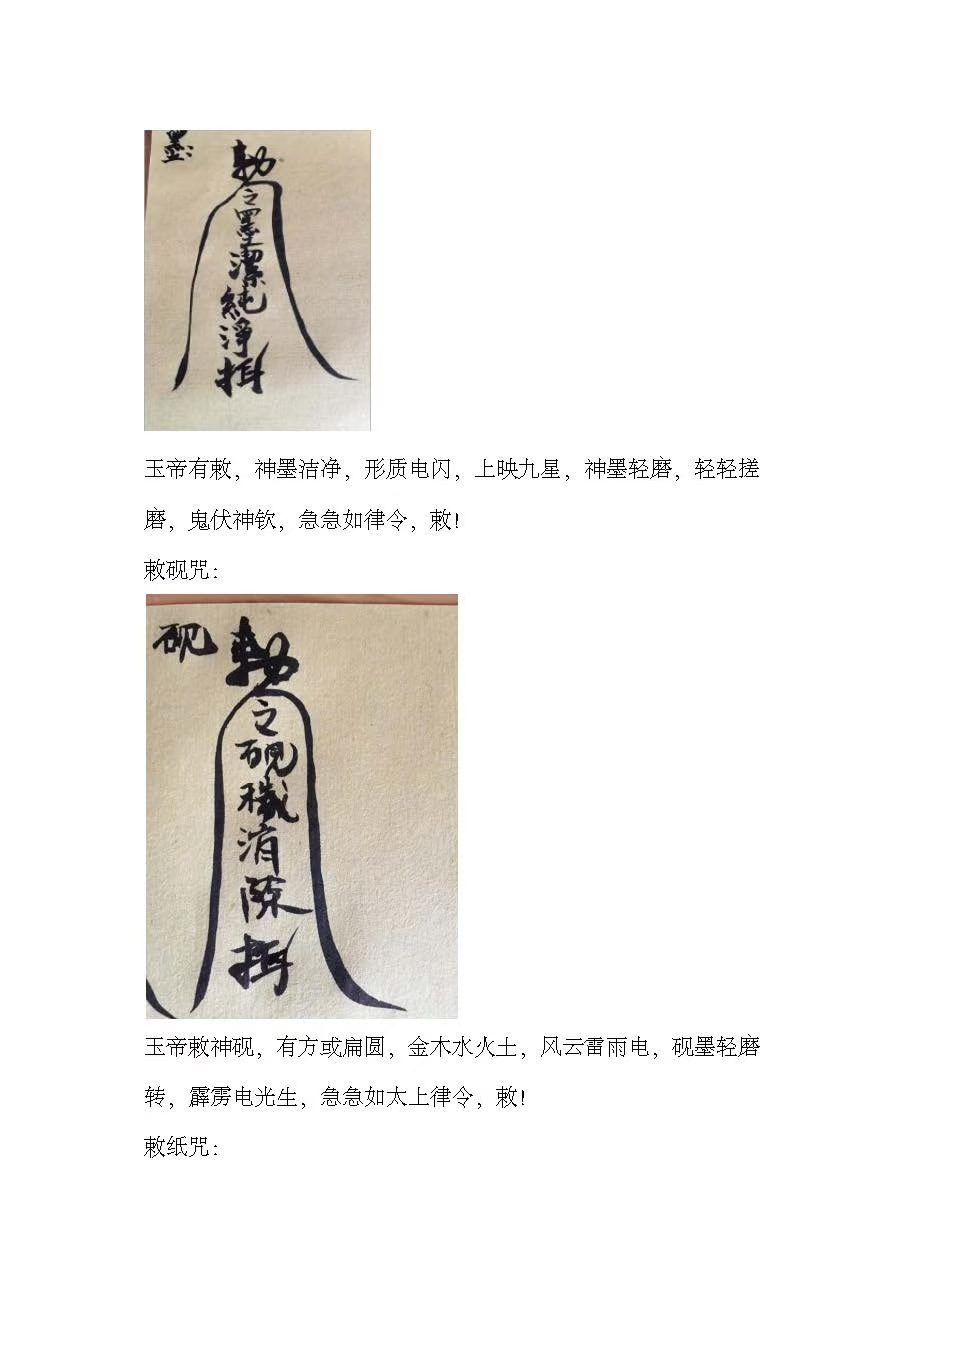 墨：
勅
令
墨
潔
純
淨
玉帝有敕，神墨洁净，形质电闪，上映九星，神墨轻磨，轻轻搓
磨，鬼伏神钦，急急如律令，敕！
敕砚咒：
砚
勅
令
砚
穢
消
除
玉帝敕神砚，有方或扁圆，金木水火土，风云雷雨电，砚墨轻磨
转，霹雳电光生，急急如太上律令，敕！
敕纸咒：